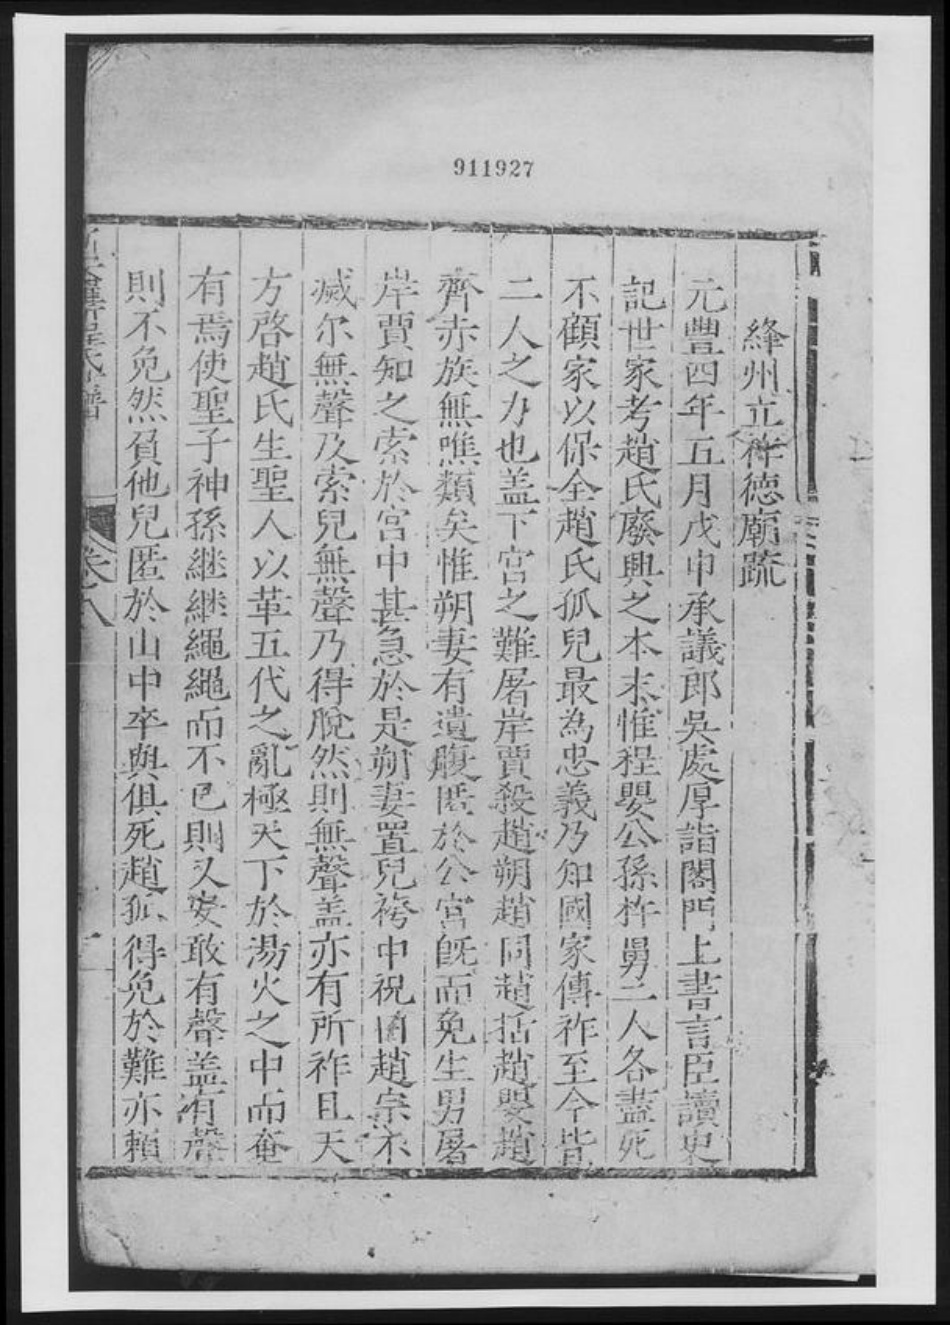 911927
絳州立祚徳廟疏
元豐四年五月戊申承議郎吳處厚詣閣門上書言臣讀史
記世家考趙氏廢興之本末惟程嬰公孫杵臼二人各盡死
不顧家以保全趙氏孤兒最為忠義乃知國家傳祚至今皆
二人之力也盖下宮之難屠岸賈殺趙朔趙同趙括趙嬰趙
齊赤族無噍類矣惟朔妻有遺腹匿於公宮旣而免生男屠
岸賈知之索於宮中甚急於是朔妻置兒袴中祝曰趙宗不
滅尔無聲及索兒無聲乃得脫然則無聲盖亦有所祚且天
方啓趙氏生聖人以革五代之亂極天下於湯火之中而奄
有焉使聖子神孫継継繩繩而不已則又安敢有聲盖有聲
則不免然負他兒匿於山中卒與俱死趙孤得免於難亦賴
程氏譜
卷八